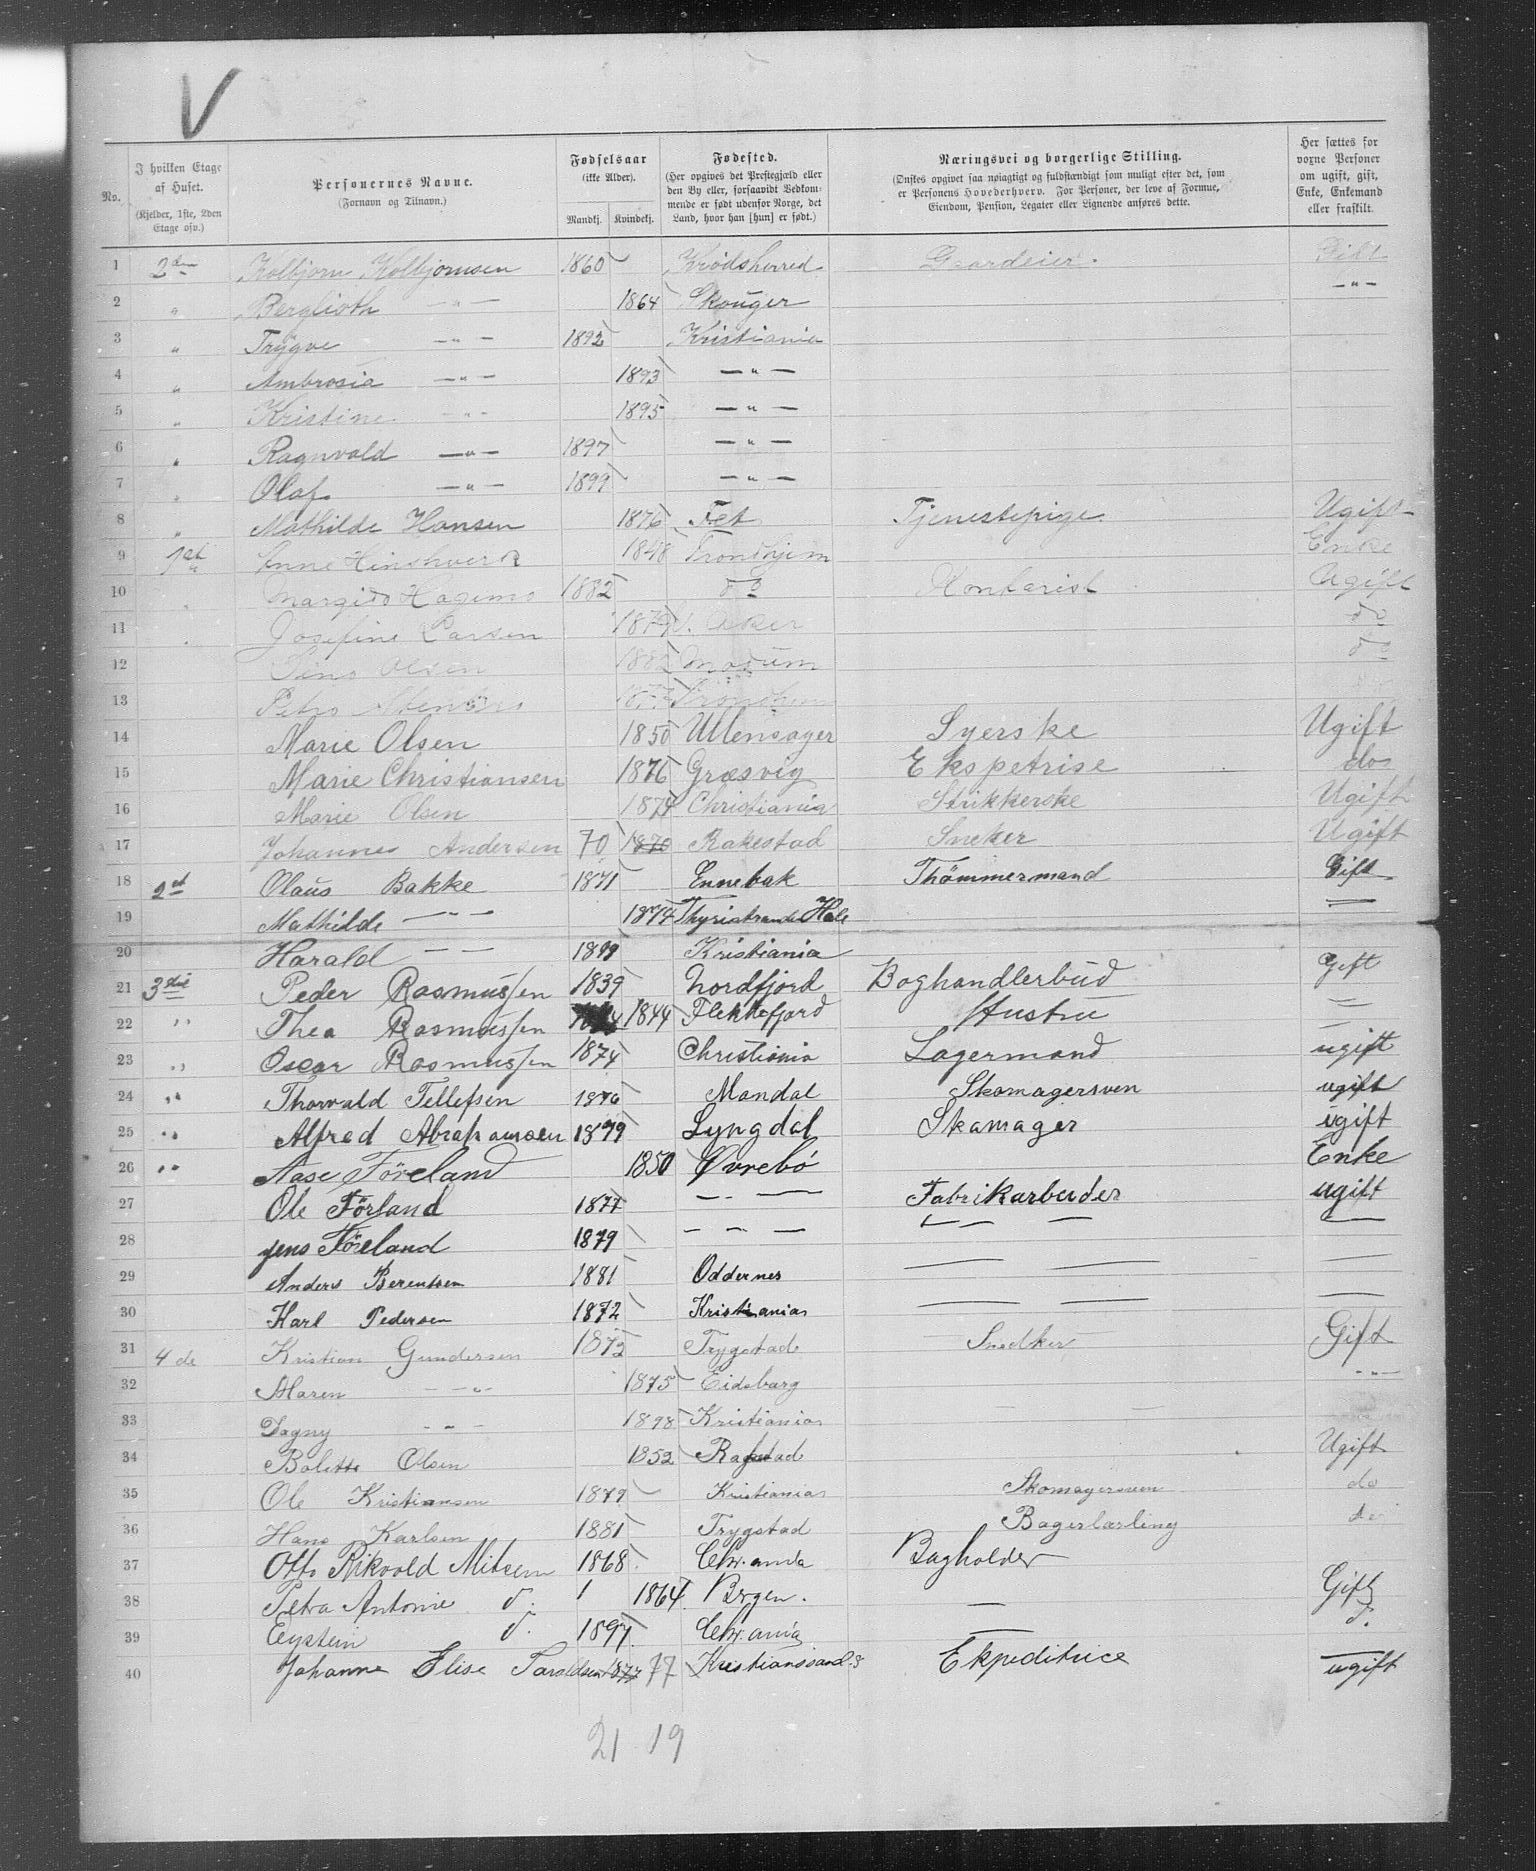 V
No.
I hvilken Etage af Huset. (Kjelder, 1ste, 2den Etage osv.)
Personernes Navne. (Fornavn og Tilnavn.)
Fødselsaar (ikke Alder). Mandkj. Kvindekj.
Fødested. (Her opgives det Prestegjæld eller den By eller, forsaavidt Vedkommende er født udenfor Norge, det Land, hvor han [hun] er født.)
Næringsvei og borgerlige Stilling. (Ønskes opgivet saa nøiagtigt og fuldstændigt som muligt efter det, som er Personens Hovederhverv. For Personer, der leve af Formue, Eiendom, Pension, Legater eller Lignende anføres dette.)
Her sættes for voxne Personer om ugift, gift, Enke, Enkemand eller fraskilt.
1 2den Kolbjørn Kolbjørnsen 1860 Krødsherred Gaardeier. Gift
2 " Berglioth —"— 1864 Skouger —"—
3 " Trygve —"— 1892 Kristiania
4 " Ambrosia —"— 1893 —"—
5 " Kristine —"— 1895 —"—
6 " Ragnvald —"— 1897 —"—
7 " Olaf —"— 1899 —"—
8 " Mathilde Hansen 1876 Fet Tjenestepige Ugift
9 1st Anne 1848 Trondhjem Enke
10 1882 do Kontorist Ugift
11 Josefine Larsen 1879 V. Aker do
12 Olsen 1882 Modum do
13 Petra
14 Marie Olsen 1850 Ullensager Syerske Ugift
15 Marie Christiansen 1876 Græsvig Ekspetrise do
16 Marie Olsen 1874 Christiania Strikkerske Ugift
17 Johannes Andersen 70 1870 Rakestad Sneker Ugift
18 2et Olaus Bakke 1871 Ennebak Thømmermand Gift
19 Mathilde —"— 1874 Thyristranden Hole —
20 Harald — — 1899 Kristiania
21 3die Peder Rasmussen 1839 Nordfjord Boghandlerbud Gift
22 " Thea Rasmussen 1844 Flekkefjord Hustru —
23 " Oscar Rasmussen 1874 Christiania Lagermand ugift
24 " Thorvald Tellefsen 1876 Mandal Skomagersven ugift
25 " Alfred Abrahamsen 1879 Lyngdal Skamager ugift
26 " Aase Föreland 1850 Øvrebö Enke
27 Ole Förland 1877 — — Fabrikarbeider ugift
28 Jens Föreland 1879 — — — — — — —
29 Anders Berentsen 1881 Oddernes — — —
30 Karl Pedersen 1872 Kristiania — — —
31 4de Kristian Gundersen 1872 Trygstad Snedker Gift
32 Maren — —"— 1875 Eidsberg —"—
33 Dagny —"— 1898 Kristiania
34 Bolette Olsen 1852 Rakestad Ugift
35 Ole Kristiansen 1879 Kristiania Skomagersven do
36 Hans Karlsen 1881 Trygstad Bagerlærling do
37 Otto Rikvold 1868 Chr.ania Bogholder
38 Petra Antonie d: 1864 Bergen. — Gift
39 Eystein d. 1897 Chr.ania — d.
40 Johanne Elise Taraldsen 1877 77 Kristianssand S Ekpeditrice ugift
21 19